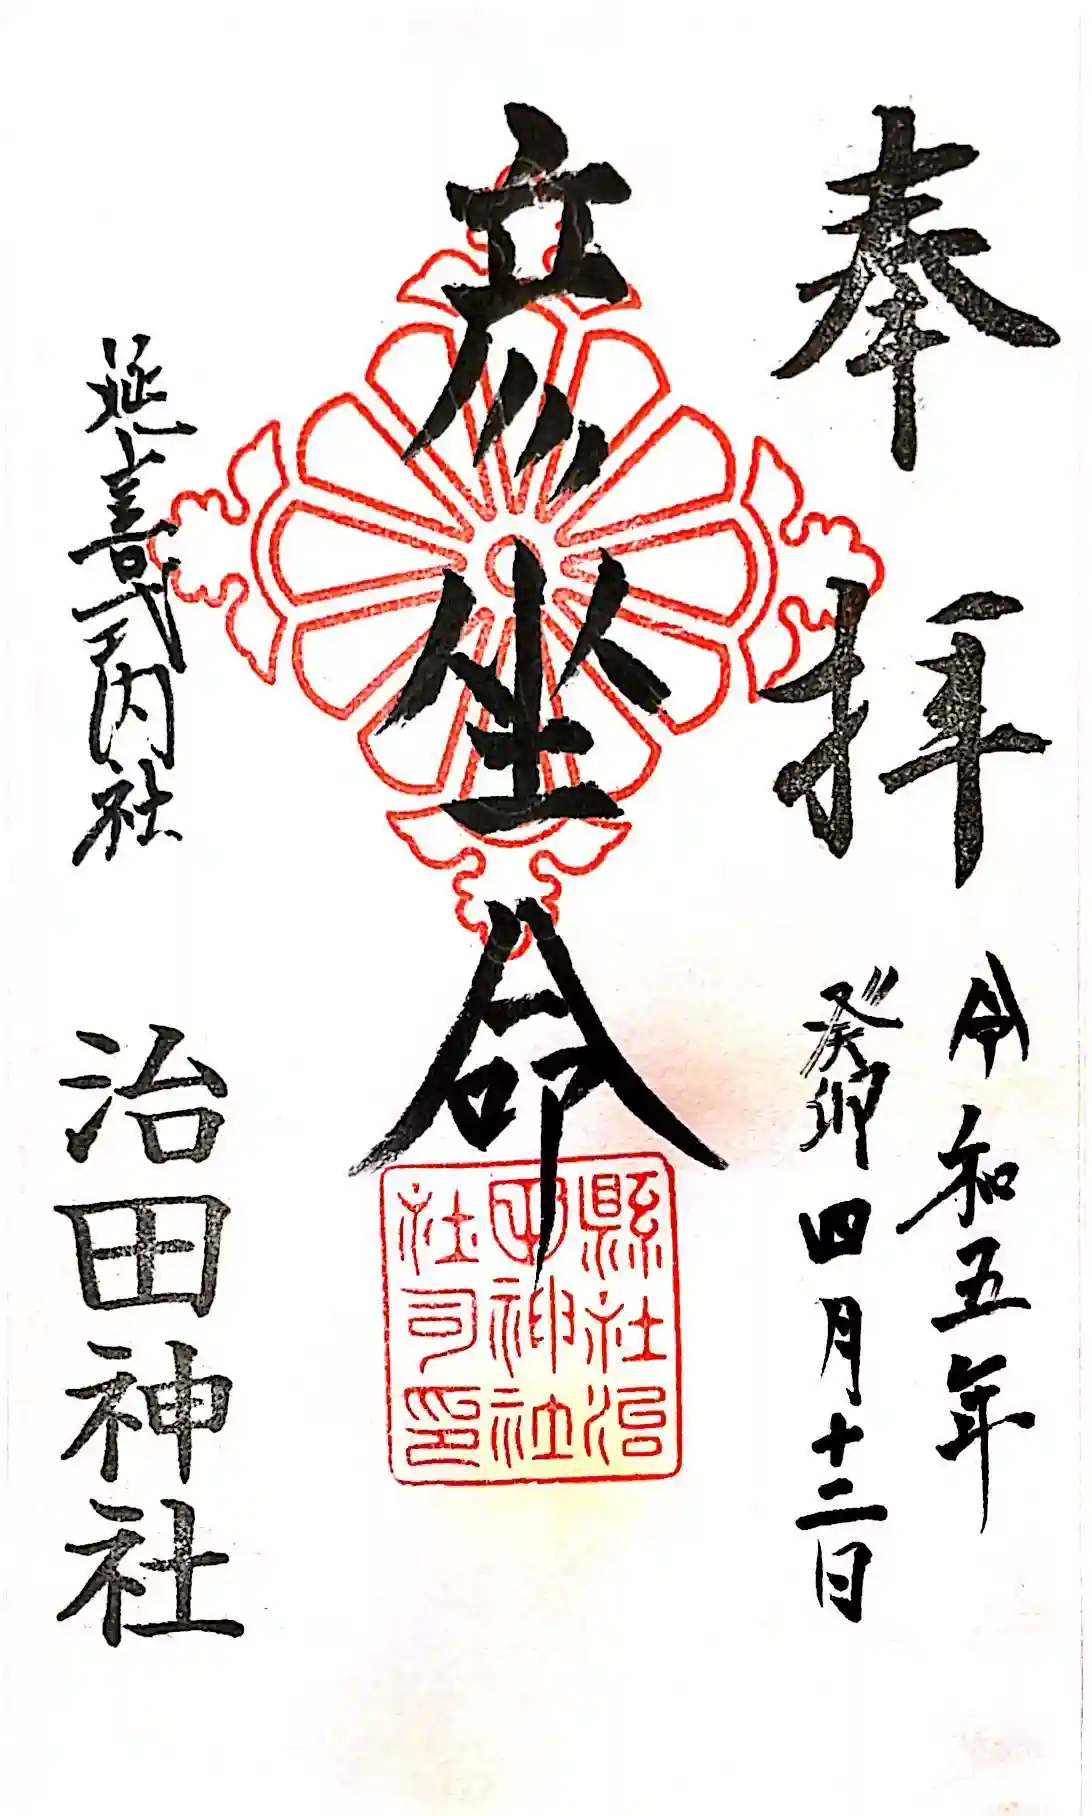 奉拝
令和五年
癸卯四月十二日
彦坐命
縣社治
田神社
社司印
延喜式内社
治田神社